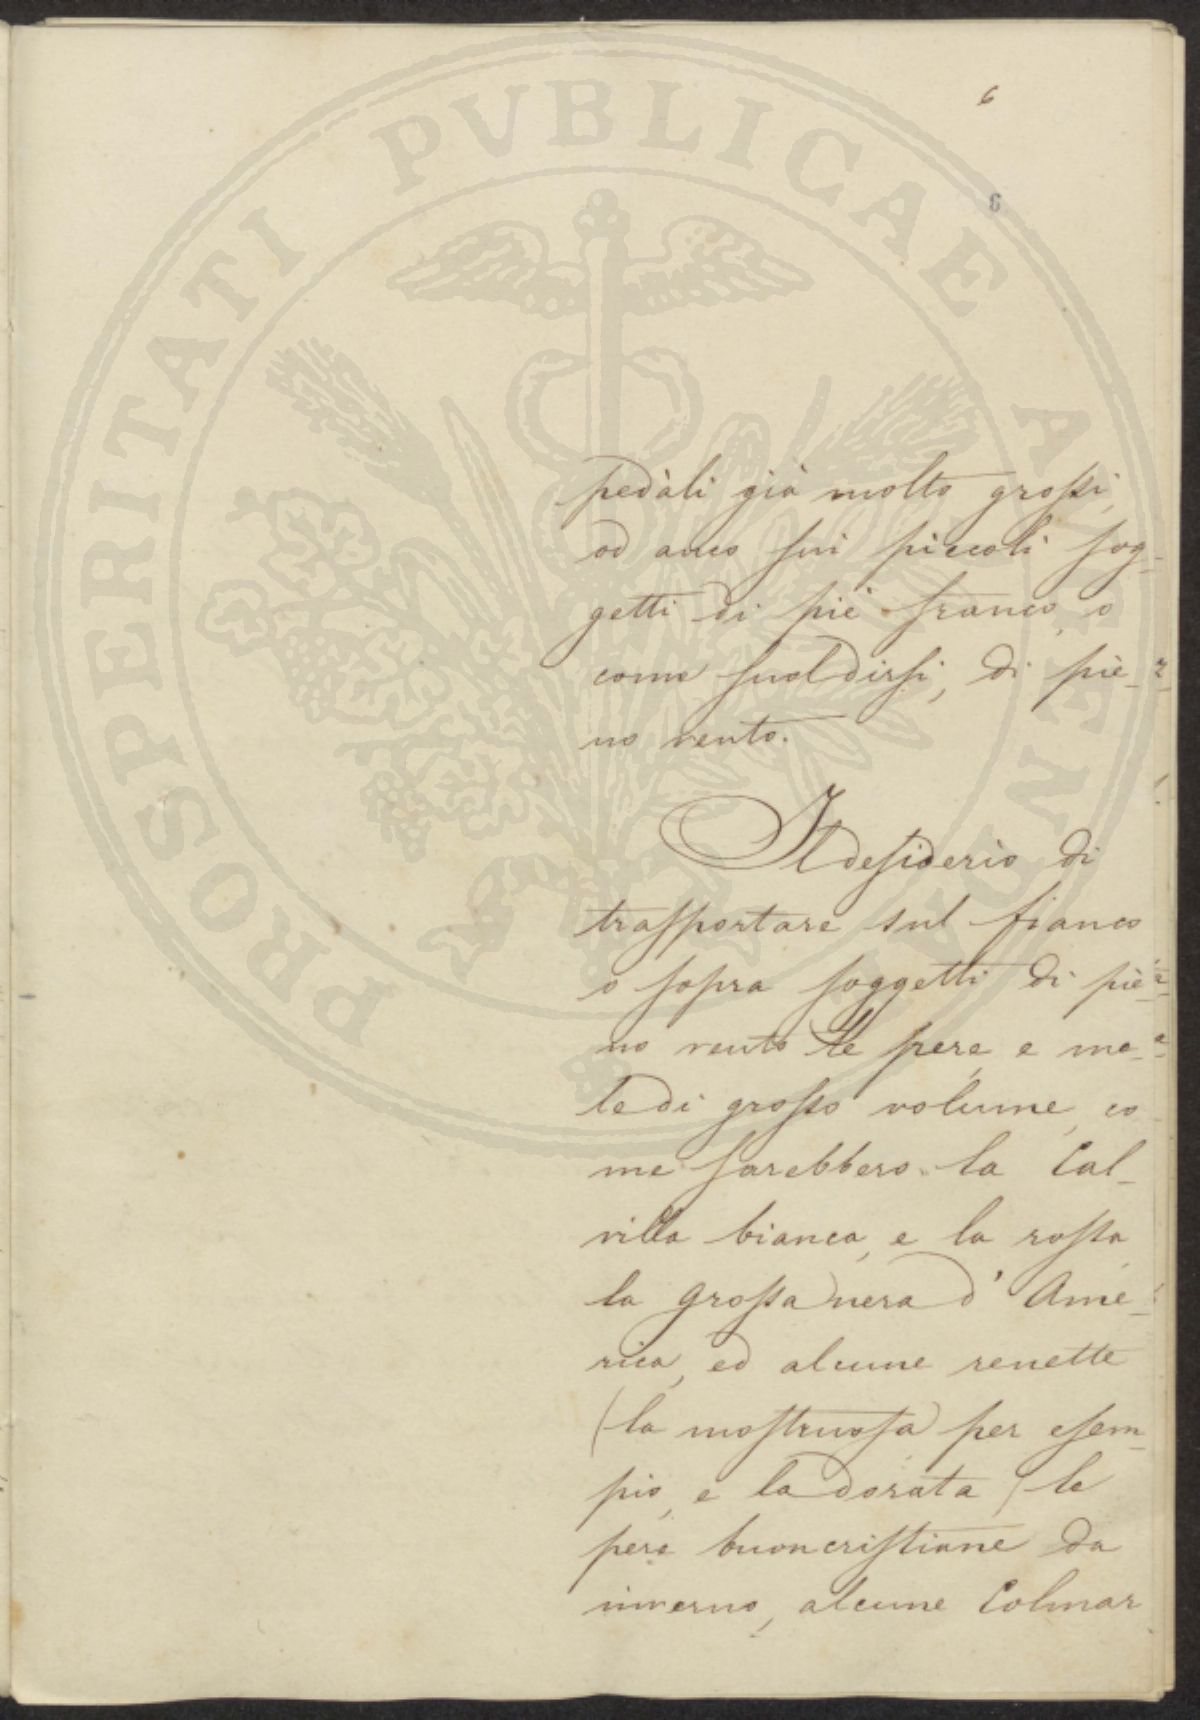 6
6
PROSPERITATI PUBLICAE AUGENDAE
pedali già molto grossi,
od anco sui piccoli sog-
getti di piè franco, o
come suol dirsi, di piè-
no vento.
Il desiderio di
trasportare sul fianco
o sopra soggetti di piè-
no vento le pere, e me-
le di grosso volume, co
me sarebbero la Cal-
villa bianca, e la rossa,
la grossa nera d'Ame-
rica, ed alcune renette
(la mostruosa per esem-
pio, e la dorata) le
pere buoncristiane da
inverno, alcune Colmar